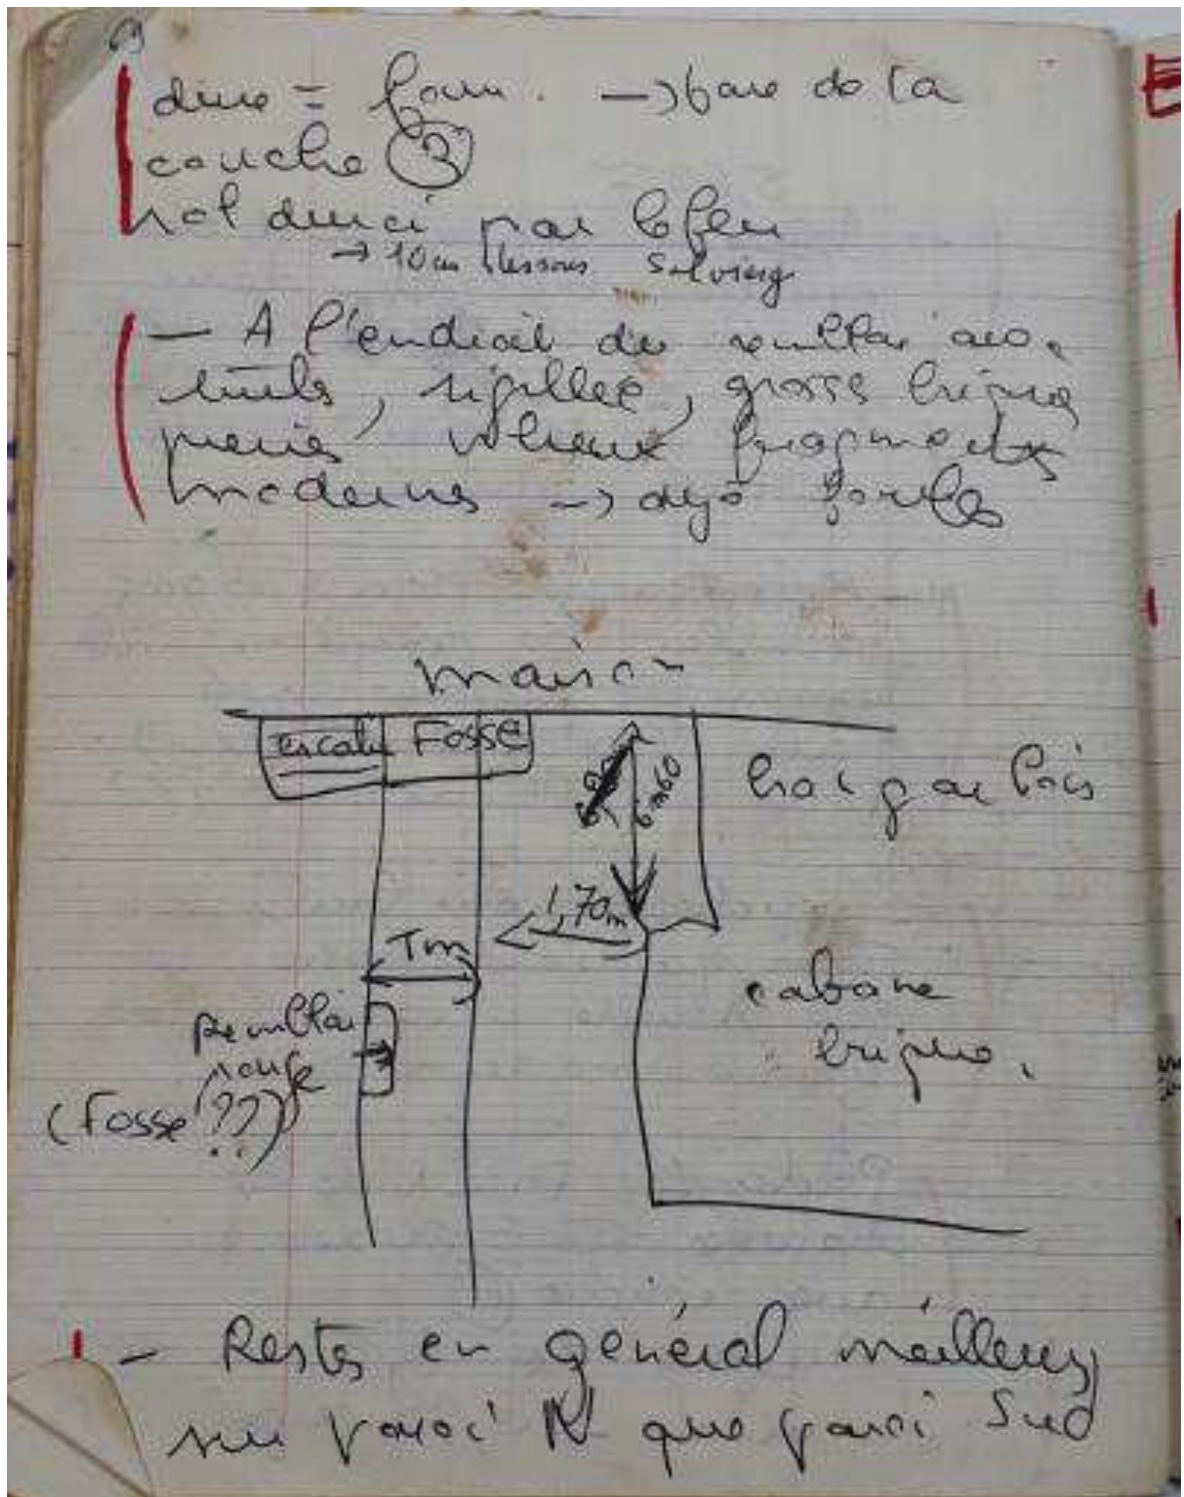 dure = foyer. → base de la
couche ③
sol durci par le feu
→ 10 cm dessous
- A l'endroit du remblai avec
tuiles, sigillée, grosse brique
fragments
modernes → déjà fouillé
maison
Escalier Fosse
6m60
hangar bois
1,70m
1m
cabane
brique.
Remblai
rouge
(Fosse ??)
- Restes en général meilleurs
sur paroi N que paroi Sud